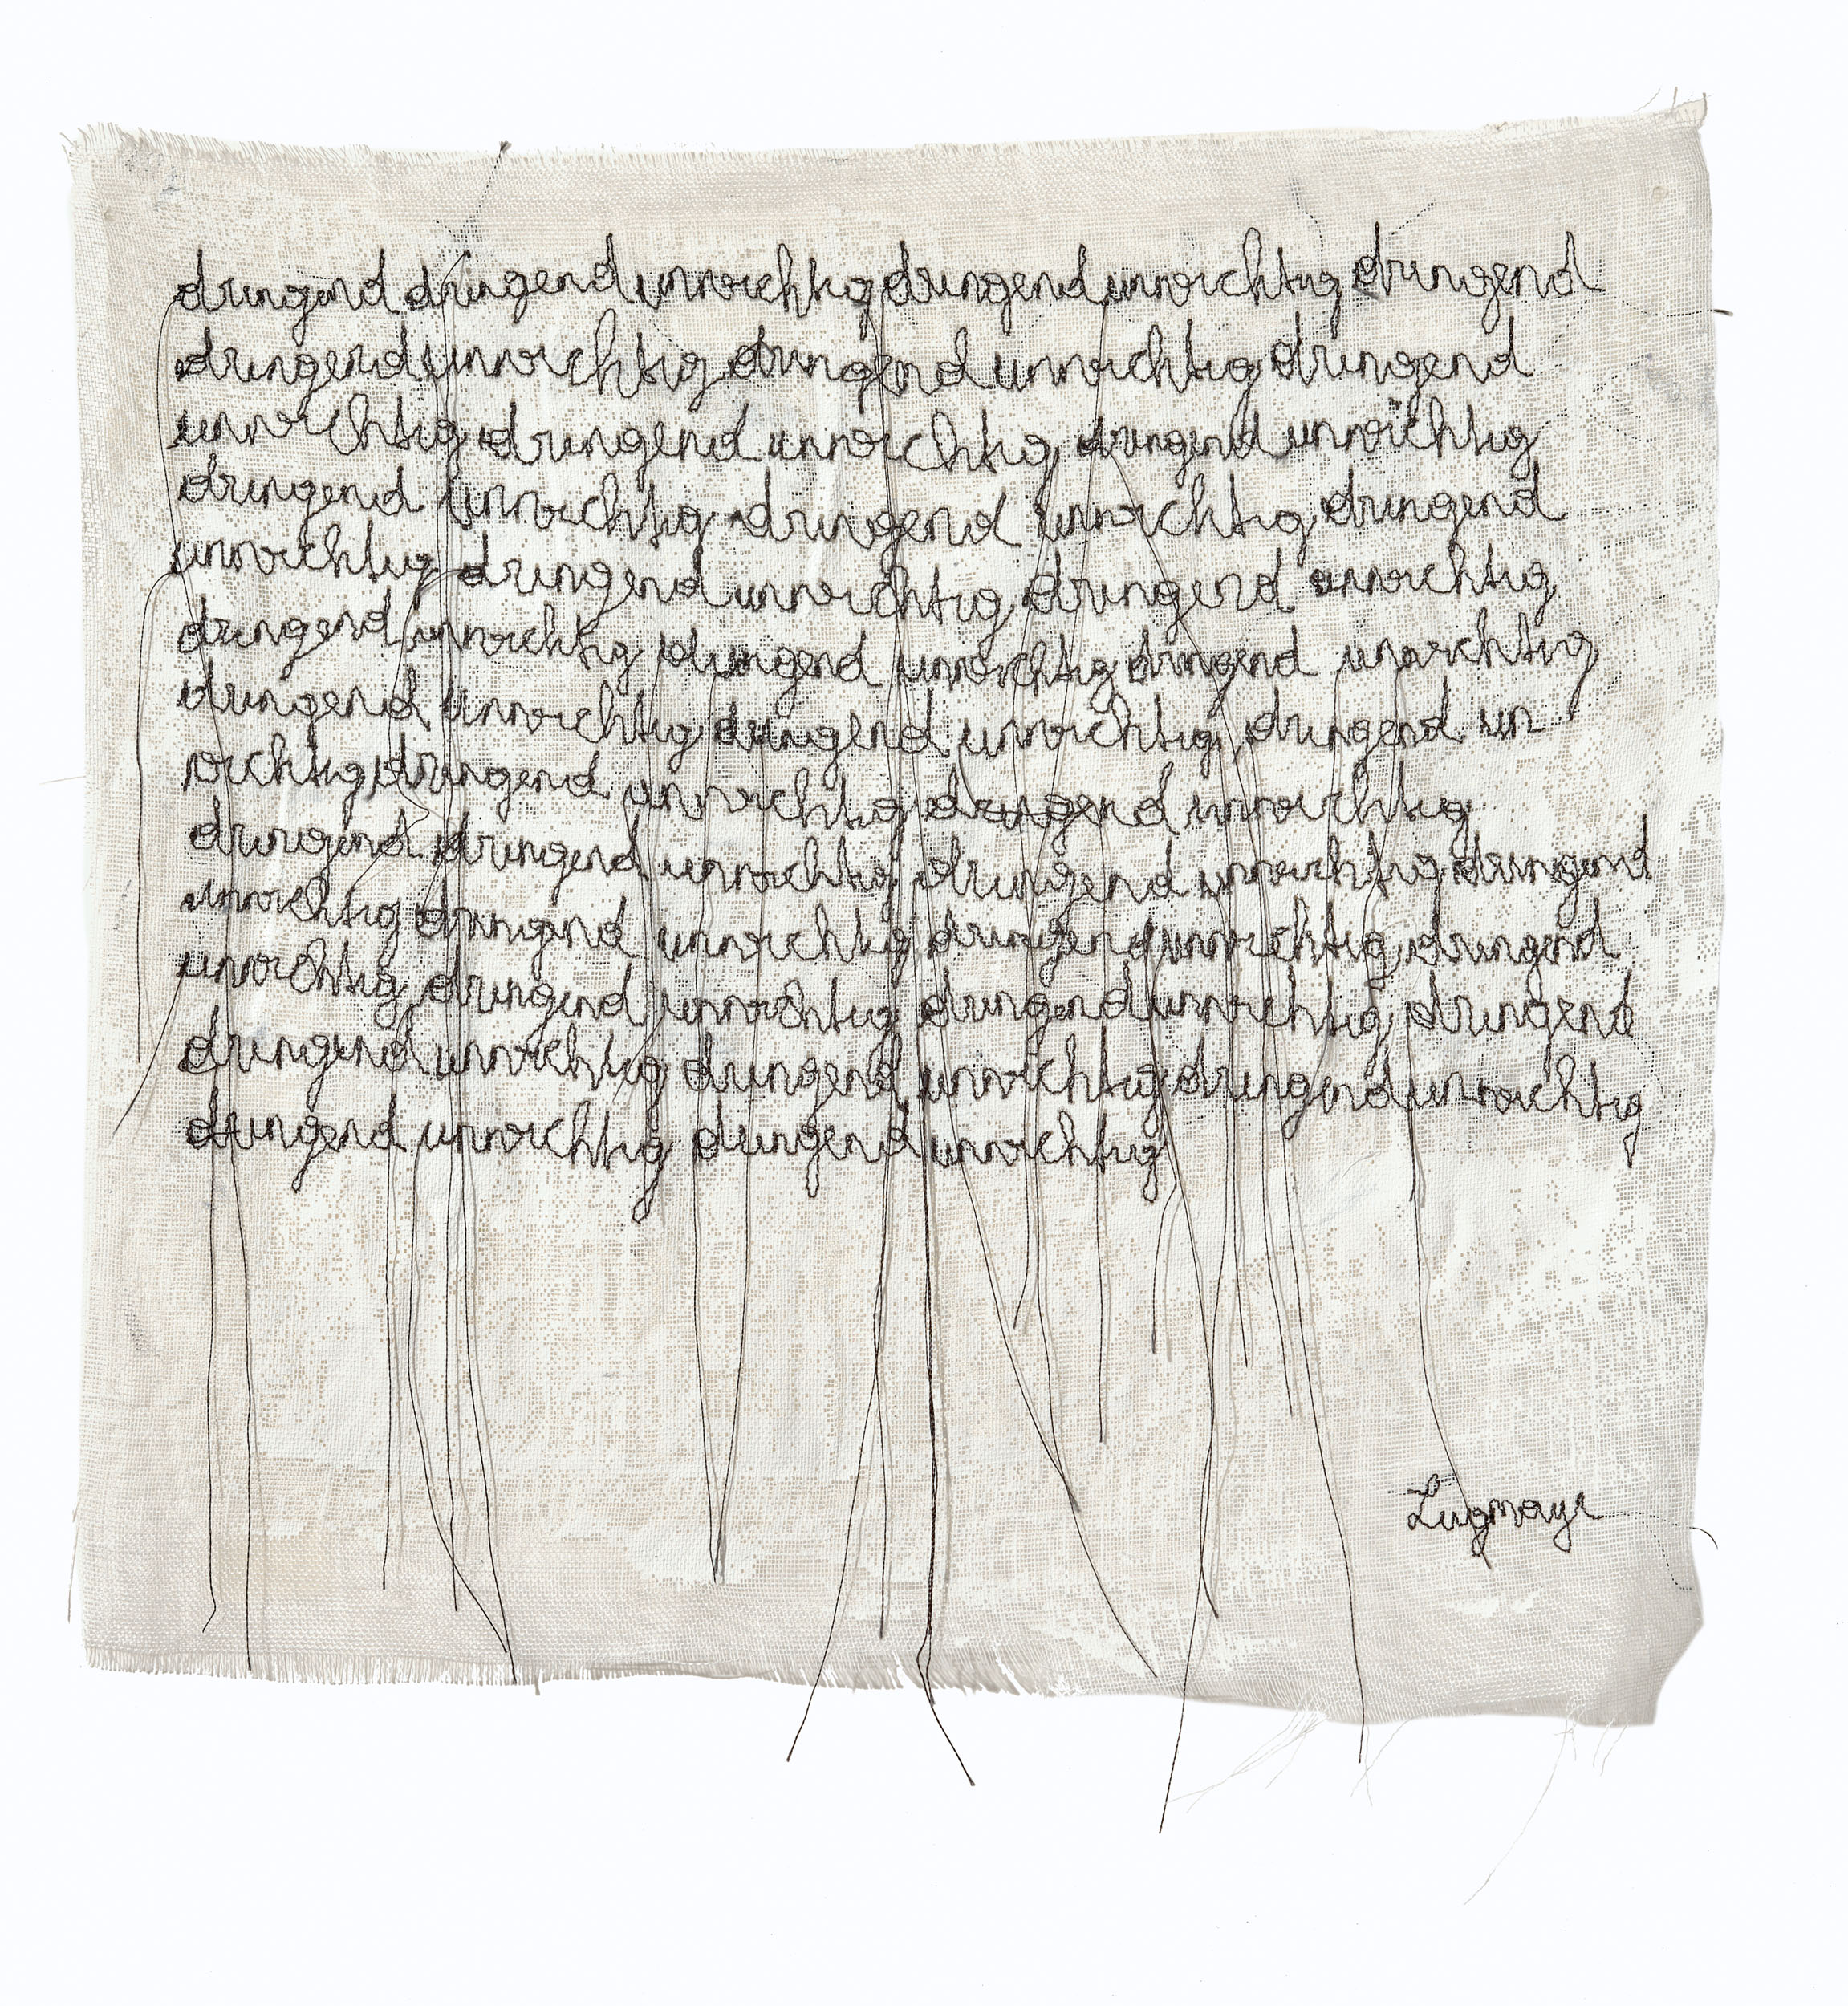 dringend dringend unwichtig dringend unwichtig dringend
dringend unwichtig dringend unwichtig dringend
unwichtig dringend unwichtig dringend unwichtig
dringend unwichtig dringend unwichtig dringend
unwichtig dringend unwichtig dringend unwichtig
dringend unwichtig dringend unwichtig dringend unwichtig
dringend unwichtig dringend unwichtig dringend un
wichtig dringend unwichtig dringend unwichtig
dringend dringend unwichtig dringend unwichtig dringend
unwichtig dringend unwichtig dringend unwichtig dringend
unwichtig dringend unwichtig dringend unwichtig dringend
dringend unwichtig dringend unwichtig dringend unwichtig
dringend unwichtig dringend unwichtig
Lugmayr